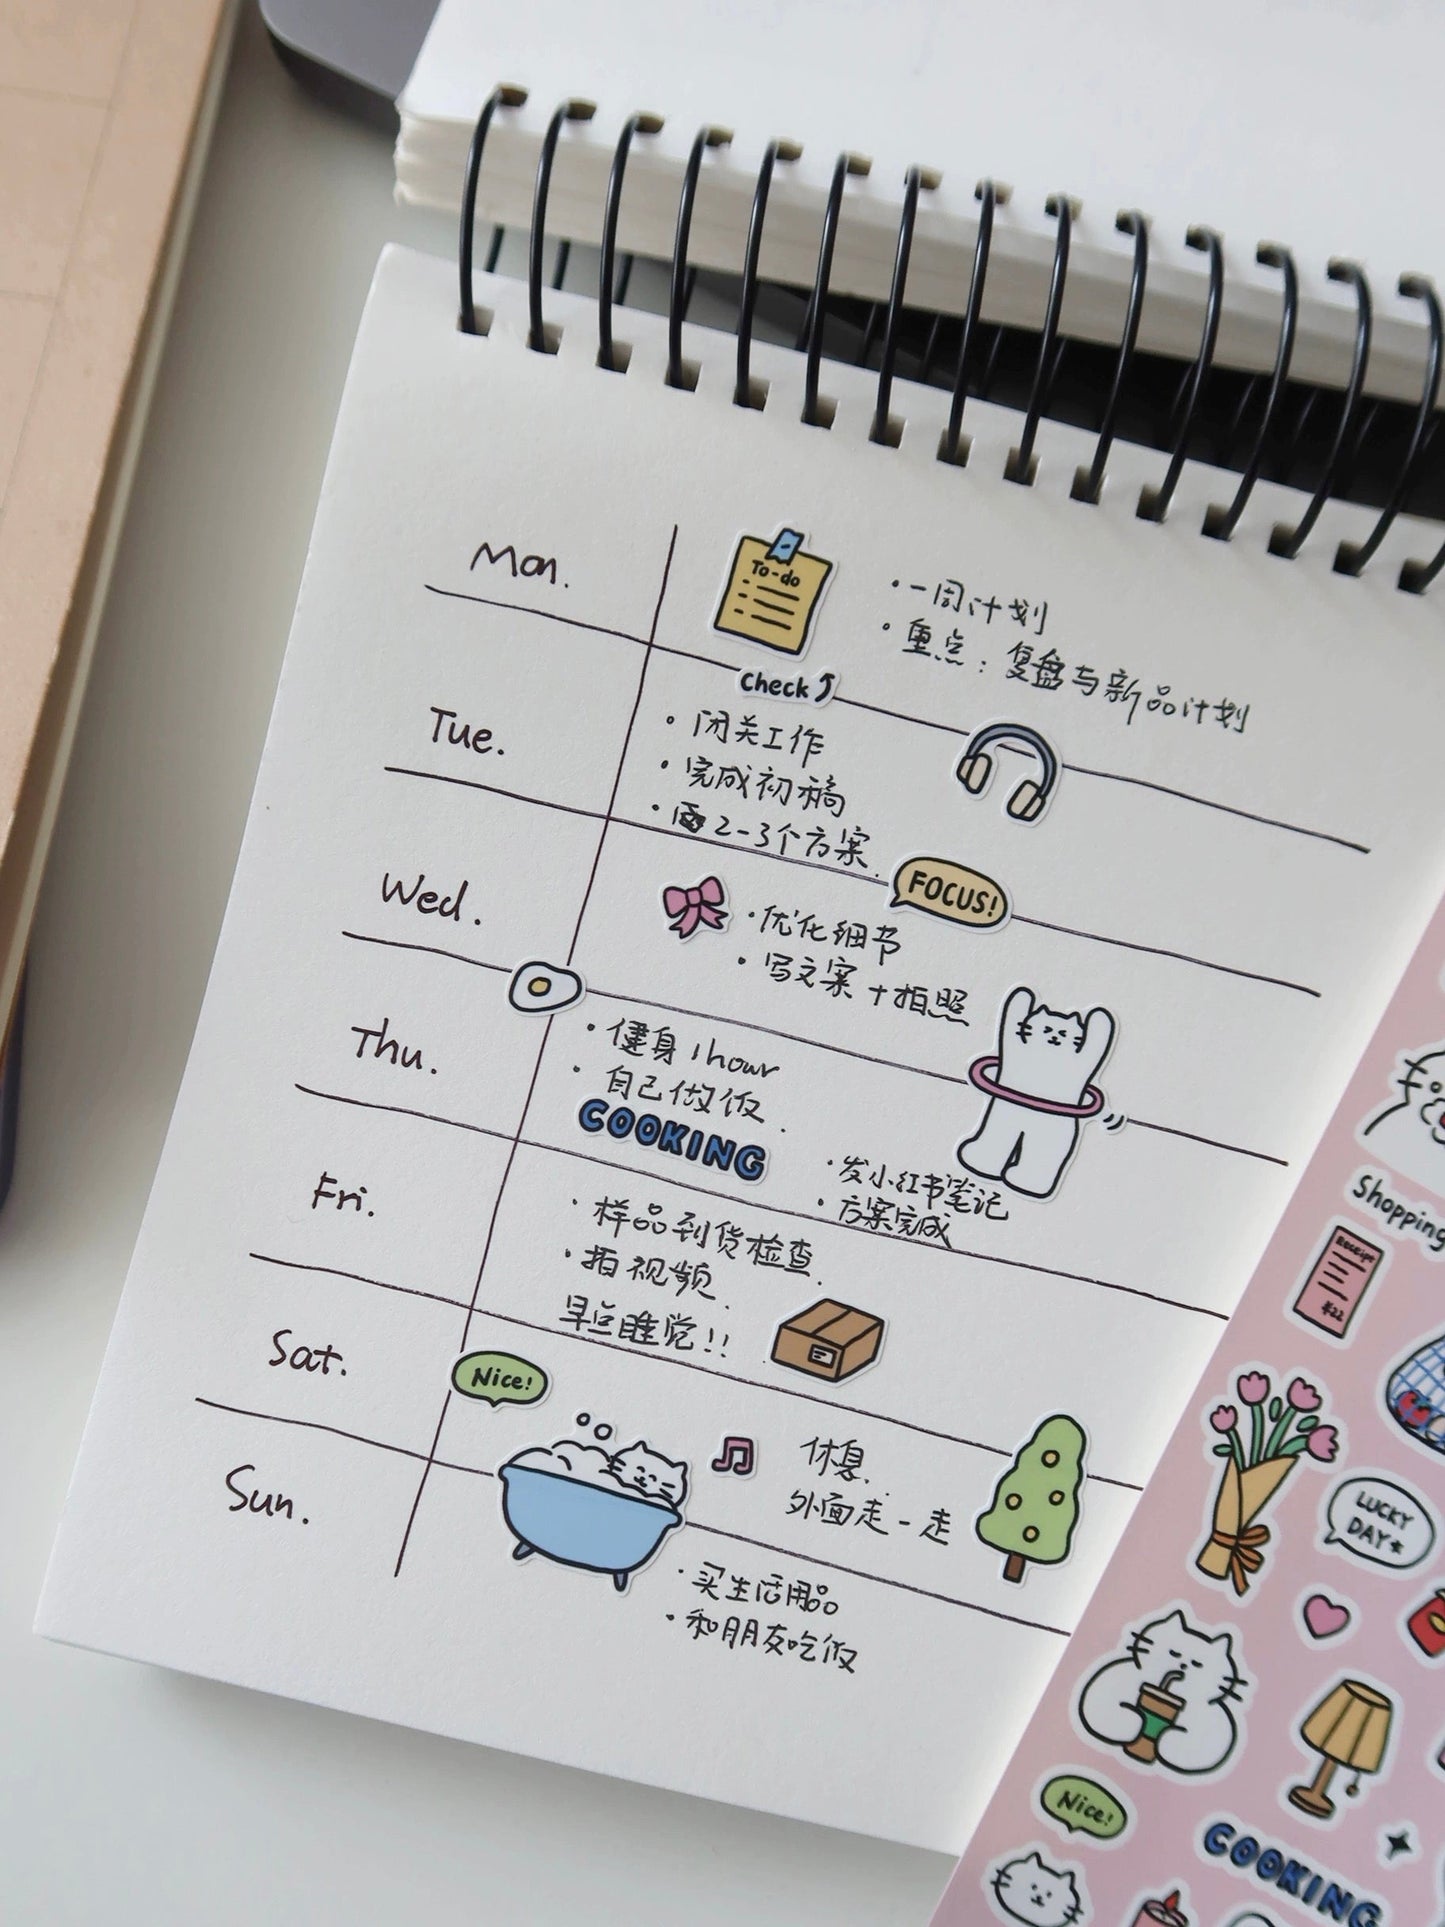 Mon.
To-do
·一周计划
·重点:复盘与新品计划
Check
Tue.
·闭关工作
·完成初稿
·2-3个方案.
FOCUS!
Wed.
·优化细节
·写文案+拍照
Thu.
·健身1hour
·自己做饭.
COOKING
·发小红书笔记
·方案完成
Fri.
·样品到货检查.
·拍视频.
早点睡觉!!
Sat.
Nice!
休息.
外面走一走
Sun.
·买生活用品
·和朋友吃饭
Shopping
RECEIPT
#22
LUCKY
DAY*
Nice!
COOKING